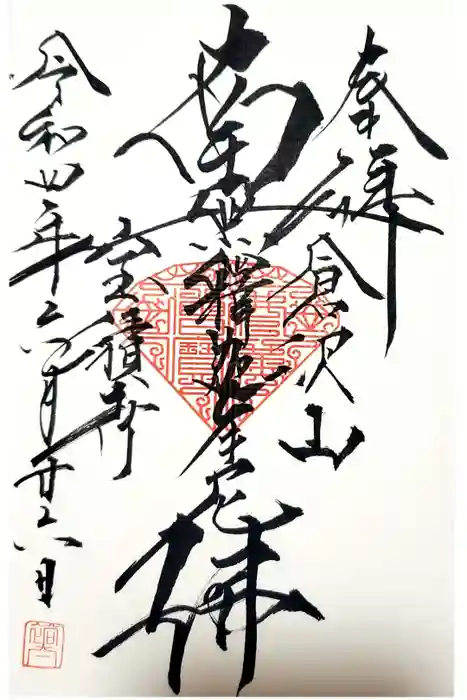 奉拝
倉沢山
南無釈迦牟尼佛
宝積寺
令和四年六月廿六日